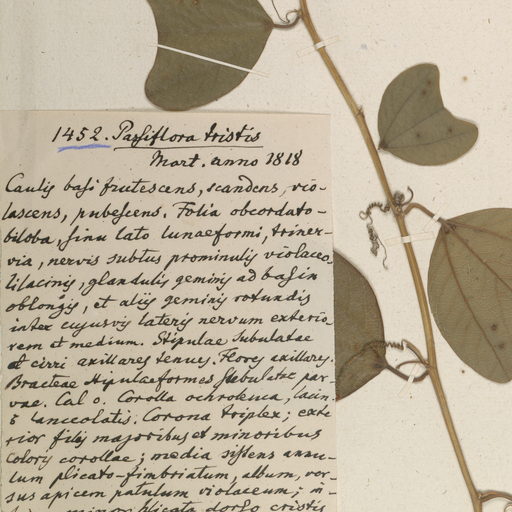 1452. Passiflora tristis
Mart. anno 1818
Caulis basi frutescens, scandens, vio-
lascens, pubescens. Folia obcordato-
biloba, sinu lato lunaeformi, triner-
via, nervis subtus prominulis violaceo
lilacinis, glandulis geminis ad basin
oblongis, et aliis geminis rotundis
inter cujusvis lateris nervum exterio-
rem et medium. Stipulae subulatae
et cirri axillares tenues. Flores axillares.
Bracteae stipulaeformes subulatae par-
vae. Cal. 0. Corolla ochroleuca, lacin.
5 lanceolatis. Corona triplex; exte
rior filis majoribus et minoribus
coloris corollae; media sistens annu-
lum plicato-fimbriatum, album, ver-
sus apicem patulum violaceum; in-
minor plicata dorso cristis